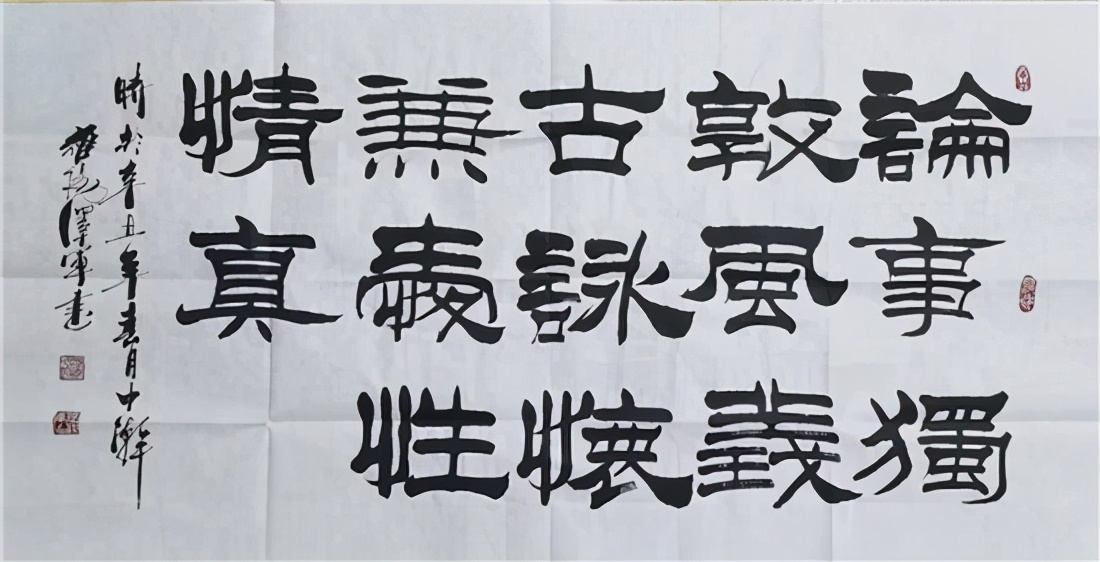 論事獨
敦風義
古詠懷
兼性
情真
時於辛丑年春月中澣
澤軍書